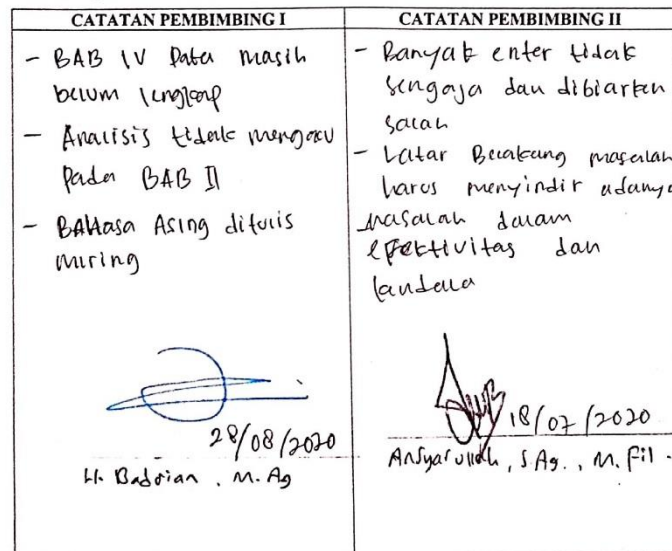 CATATAN PEMBIMBING I
- BAB IV Data masih
belum lengkap
- Analisis tidak mengacu
Pada BAB II
- BAHasa Asing ditulis
miring
28/08/2020
H. Badrian, M.Ag
CATATAN PEMBIMBING II
- Banyak enter tidak
sengaja dan dibiarkan
salah
- Latar Belakang masalah
harus menyindir adanya
masalah dalam
efektivitas dan
18/07/2020
Ansyarullah, S.Ag., M.Fil.